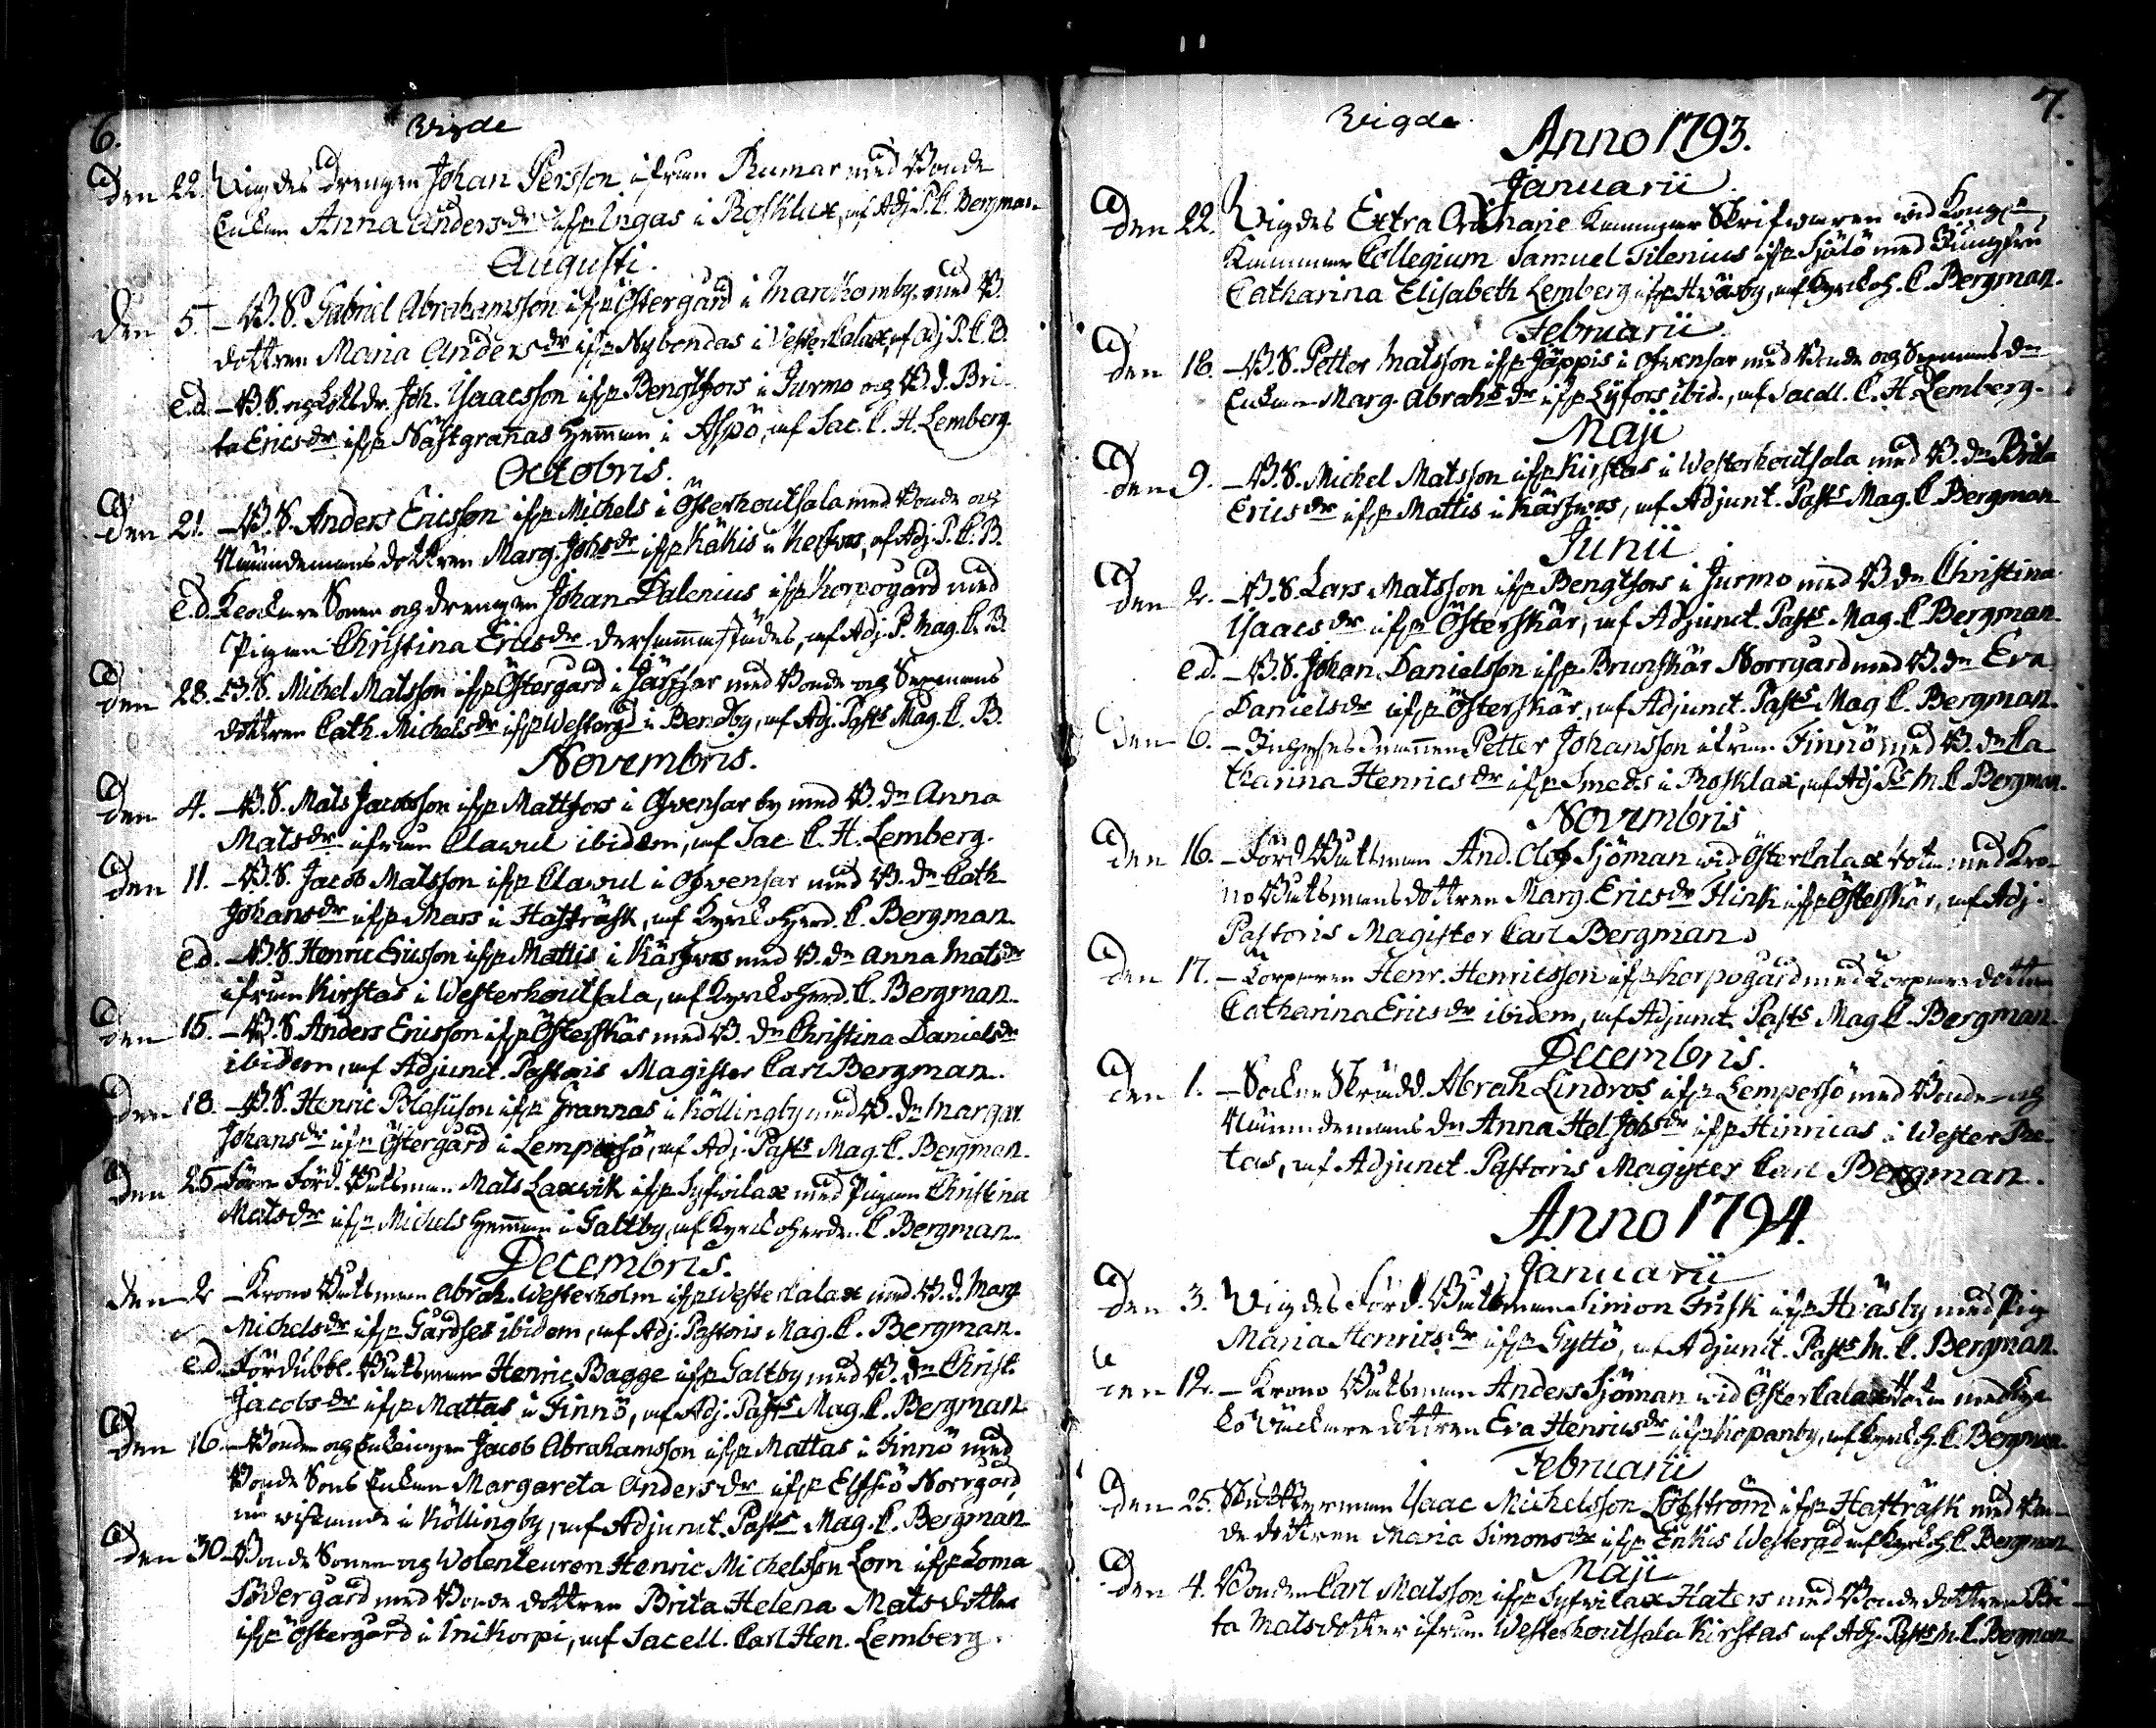 6.
Vigde
den 22. Vigdes Drengen Johan Persson ifrån Rumar med Bonde
Enkan Anna Andersdr ifrån Ingas i Rosklax, af Adj. P. C. Bergman.
Augusti.
den 5. – B. S. Gabriel Abrahamsson ifrån Östergård i Marckomby med B.
dottren Maria Andersdr ifrån Nybondas i Westerkalax, af Adj. P. C. B.
e.d. – B. S. og Joh. Isaacsson ifrån Bengtsfors i Jurmo og B. d. Bri
ta Ericsdr ifrån Nästgrañas Heman i Aspö, af Sac. C. H. Lemberg.
Octobris.
den 21. – B. S. Anders Ericsson ifrån Michels i Österhoutsala med Bonde og
Nämndemans dottren Marg. Johsdr ifrån Käkis i Kersvos, af Adj. P. C. B.
e.d. Klockare Sonen og drengen Johan Dalenius ifrån Korpogård med
Pigan Christina Ericsdr dersammastädes, af Adj. P. Mag. C. B.
den 28. – B. S. Michel Matsson ifrån Östergård i med Bonde og Sexmans
dottren Cath. Michelsdr ifrån Westergd i Bendby, af Adj. Pasts Mag. C. B.
Novembris.
den 4. – B. S. Mats Jacobsson ifrån Mattsfors i Ofvensar by med B. dn Anna
Matsdr ifrån Clawul ibidem, af Sac C. H. Lemberg.
den 11. – B. S. Jacob Matsson ifrån Clawul i Ofvensar med B. dn Cath
Johansdr ifrån Mars i Hafträsk, af Kyrckoherd. C. Bergman.
e.d. – B. S. Henric Ericsson ifrån Mattis i Kärsvos med B. dn Anna Matsdr
ifrån Kirstas i Westerhoutsala, af Kyrckoherd. C. Bergman.
den 15. – B. S. Anders Ericsson ifrån Österskär med B. dn Christina Danielsdr
ibidem, af Adjunct. Pastoris Magister Carl Bergman.
den 18. – B. S. Henric ifrån Grannas i Köllingby med B. dn Margar.
Johansdr ifrån Östergård i Lempersö, af Adj. Pasts Mag. C. Bergman.
den 25. Förd. Båtsman Mats Laxwik ifrån Syfvilax med Pigan Christina
Matsdr ifrån Michels Heman i Galtby, af Kyrckoherden C. Bergman.
Decembris.
den 2 – Krono Båtsman Abrah. Westerholm ifrån Westerkalax med B. d. Marg
Michelsdr ifrån Gårdses ibidem, af Adj. Pastoris Mag. C. Bergman.
e.d. Fördubbl. Båtsman Henric Bagge ifrån Galtby med B. dn Christ.
Jacobsdr ifrån Mattas i Finnö, af Adj. Pasts Mag. C. Bergman.
den 16. – Bonden og Enklingen Jacob Abrahamsson ifrån Mattas i Finnö med
Bonde Sons Enkan Margareta Andersdr ifrån Elfsiö Norrgård,
nu vistande i Köllingby, af Adjunct. Pasts Mag. C. Bergman
den 30 – Bonde Sonen og Wolenteuren Henric Michelsson Lom ifrån Loma
Södergård med Bonde dottren Brita Helena Mats dotter
ifrån Östergård i Krikorpi, af Sacell. Carl Hen. Lemberg.
7.
Vigde
Anno 1793.
Januarii.
den 22. Vigdes Extra Ordinarie Kammar Skrifvaren vid Kongl.
Kammar Collegium Samuel Tilenius ifrån Sjölö med Jungfru
Catharina Elisabeth Lemberg ifrån Hväsby, af Kyrckoh. C. Bergman.
Februarii
den 16. – B. S. Petter Matsson ifrån Jäppis i Ofvensar med Bonde og Sexmans dn
Enkan Marg. Abrahsdr ifrån Lyfors ibid., af Sacell. C. H. Lemberg.
Maji
den 9. – B. S. Michel Matsson ifrån Kirstas i Westerhoutsala med B. dn Brita
Ericsdr ifrån Mattis i Kärsvos, af Adjunt. Pasts Mag. C. Bergman
Junii
den 2. – B. S. Lars Matsson ifrån Bengtsfors i Jurmo med B. dn Christina
Isaacsdr ifrån Österskär, af Adjunct. Pasts Mag. C. Bergman.
e.d. – B. S. Johan Danielsson ifrån Brunskär Norrgård med B. dn Eva
Danielsdr ifrån Österskär, af Adjunct. Pasts Mag C. Bergman.
den 6. – Petter Johansson ifrån Finnö med B. dn Ca
tharina Henricsdr ifrån Smeds i Rosklax, af Adj Ps M. C. Bergman.
Novembris
den 16. – Förd. Båtsman And. Olof Sjöman vid Österkalax Rote med Kro
no Båtsmans dottren Marg. Ericsdr Hink ifrån Österskär, af Adj.
Pastoris Magister Carl Bergman.
den 17. – Torparen Henr. Henricsson ifrån Korpogård med Torpare dottren
Catharina Ericsdr ibidem, af Adjunct Pasts Mag C. Bergman.
Decembris.
den 1. – Sockne Skrädd. Abrah Lindros ifrån Lempersö med Bonde og
Nämndemans dn Anna Hel. Johsdr ifrån Hinricas i Wester Re
tas, af Adjunct Pastoris Magister Carl Bergman.
Anno 1794.
Januarii
den 3. Vigdes Förd. Båtsman Simon Frisk ifrån Hväsby med Pig
Maria Henricsdr ifrån Gyttö, af Adjunct. Pasts M. C. Bergman.
den 12. – Krono Båtsman Anders Sjöman vid Österkalax Rote med Kyr
ko Väcktare dottren Eva Henricsdr ifrån Kopanby, af Kyrckoh. C. Bergman.
Februarii
den 25. Isaac Michelsson Löfström ifrån Hafträsk med Bon
de dottren Maria Simonsdr ifrån Enkis Westergd af Kyrckoh C. Bergman.
Maji
den 4. Bonden Carl Matsson ifrån Syfvilax Haters med Bonde dottren Bri
ta Matsdotter ifrån Westerhoutsala Kirstas af Adj. Pasts M. C. Bergman